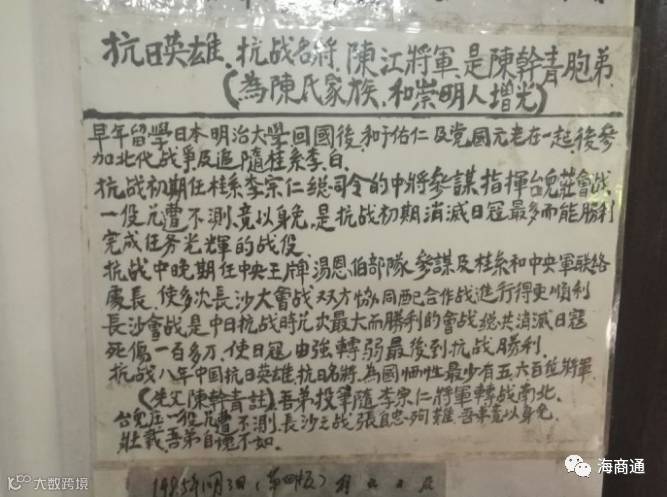 抗日英雄、抗战名将、陳江將軍、是陳幹青胞弟、
(為陳氏家族、和崇明人增光)
早年留學日本明治大學、回國後、和于佑仁及党國元老在一起、後參
加北伐战爭及追隨桂系李、白、
抗战初期任桂系李宗仁總司令的中將參謀指揮台兒莊會战、
一役几遭不測、竟以身免、是抗战初期消滅日冦最多而能勝利
完成任务光輝的战役、
抗战中晚期任中央王牌湯恩伯部隊參謀及桂系和中央軍联络
處長、使多次長沙大會战双方協同配合作战進行得更順利
長沙會战是中日抗战時几次最大而勝利的會战總共消滅日冦
死傷一百多万、使日冦由強轉弱最後到抗战勝利、
抗战八年中國抗日英雄、抗日名將、為國牺牲最少有五六百位將軍
(先父陳幹青註)、吾弟投筆隨李宗仁將軍轉战南北、
台兒庄一役几遭不測、長沙之战、張自忠殉难、吾弟竟以身免、
壯哉、吾弟自還不如、
1985年
(第四版)
海商通
大数跨境